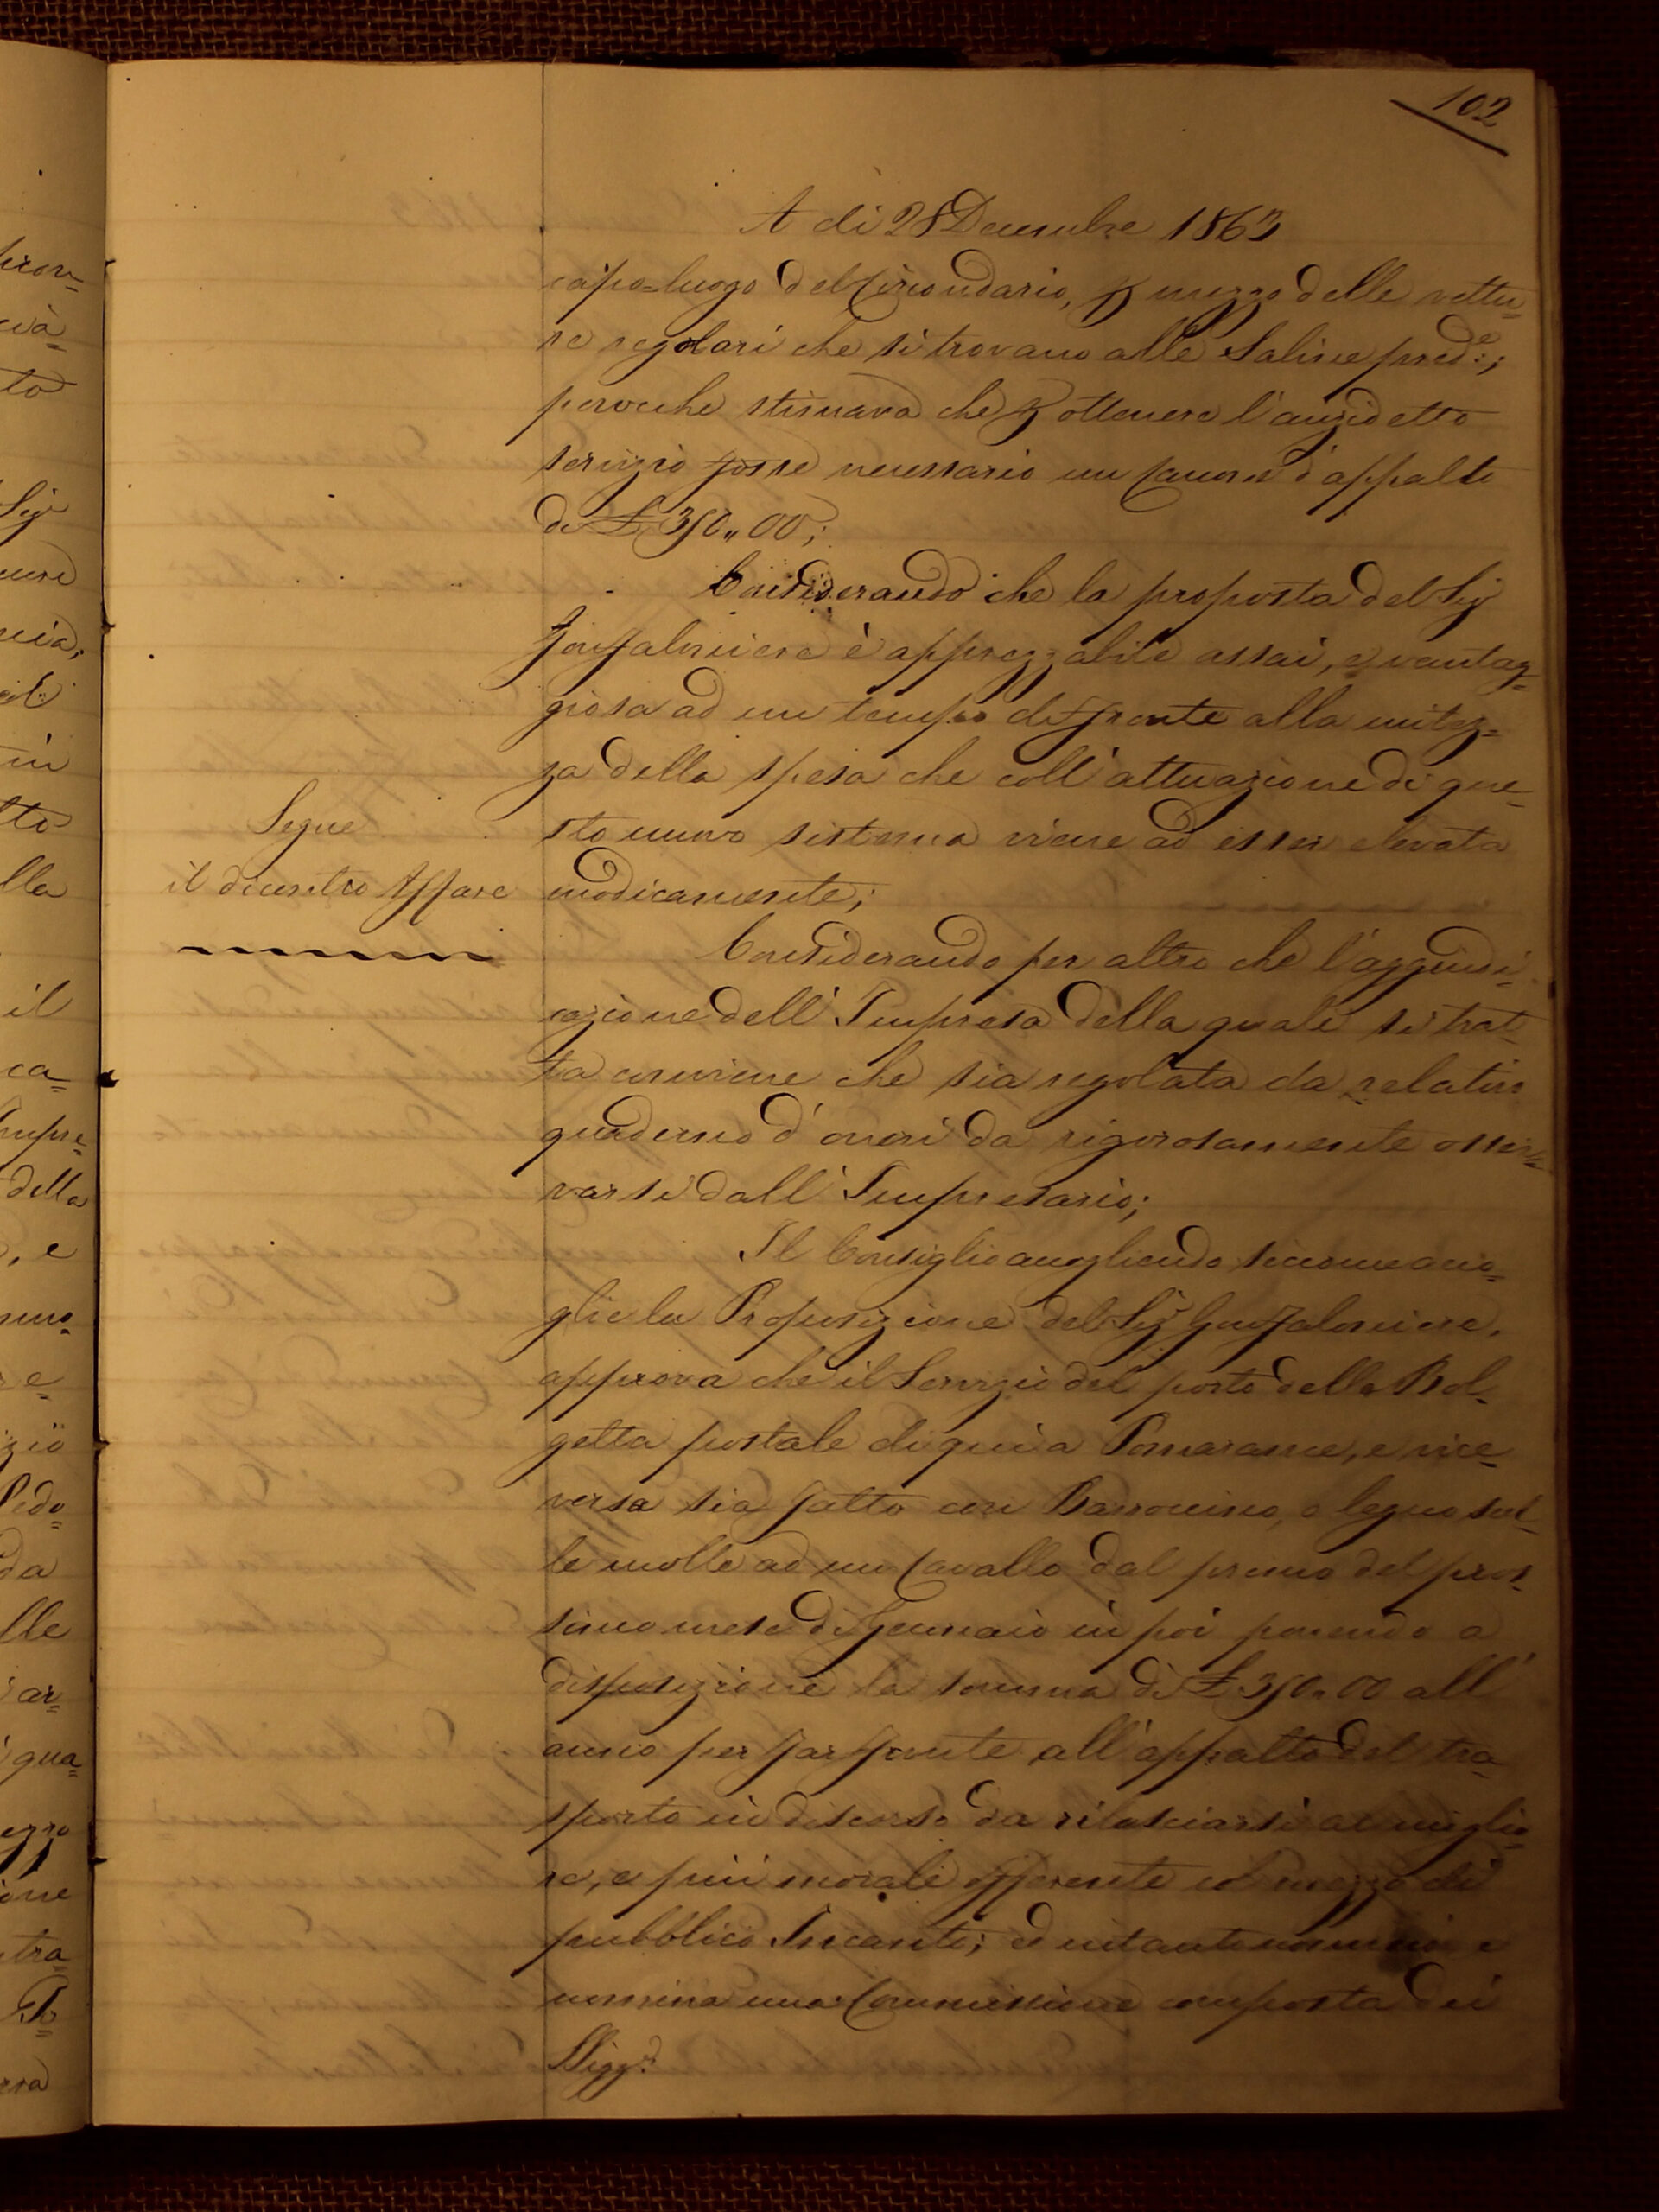 102
A dì 28 Decembre 1863
capo-luogo del Circondario, p mezzo delle vettu=
re regolari che si trovano alle Saline pred:e;
perocche stimava che p ottenere l'anzidetto
servizio fosse necessario un canone d'appalto
di £ 350,,00;
Considerando che la proposta del Sig
Gonfaloniere è apprezzabile assai, e vantag=
giosa ad un tempo di fronte alla mitez=
za della spesa che coll'attuazione di que=
sto nuovo sistema viene ad esser elevata
modicamente;
Segue
il dicontro Affare
Considerando per altro che l'aggiudi=
cazione dell'Impresa della quale si trat=
ta conviene che sia regolata da relativo
quaderno d'oneri da rigorosamente osser=
varsi dall'Impresario;
Il Consiglio accogliendo siccome acco=
glie la Proposizione del Sig Gonfaloniere,
approva che il Servizio del porto della Bol=
getta postale di qui a Pomarance, e vice=
versa sia fatto con Barroccino, o legno sul=
le molle ad un Cavallo dal primo del pros=
simo mese di Gennaio in poi ponendo a
disposizione la somma di £ 350,,00 all'
anno per far fronte all'appalto del tra=
sporto in discorso da rilasciarsi al miglio=
re, e più morale offerente col mezzo di
pubblico Incanto; ed intanto nominò e
nomina una Commissione composta dei
SSigg:ri
prov=
cià=
to
Sig
il
in
tto
lla
il
ca=
Impre=
della
, e
re=
zio
Pedo=
da
lle
ar=
qua=
ezzo
ione
tra=